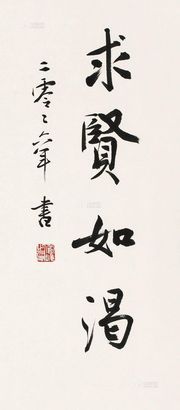 求賢如渴
二零零六年 書